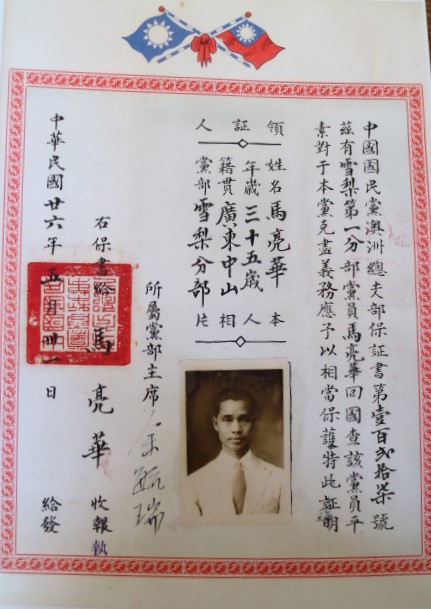 中國國民黨澳洲總支部保証書第壹百弍拾柒號
茲有雪梨第一分部黨員馬亮華回國查該黨員平
素對于本黨克盡義務應予以相當保護特此証明
領証人
姓名馬亮華
年歲三十五歲
籍貫廣東中山
黨部雪梨分部
本人相片
所屬黨部主席余毓瑞
右保書給馬亮華收報執
中華民國廿六年五月卅一日給發